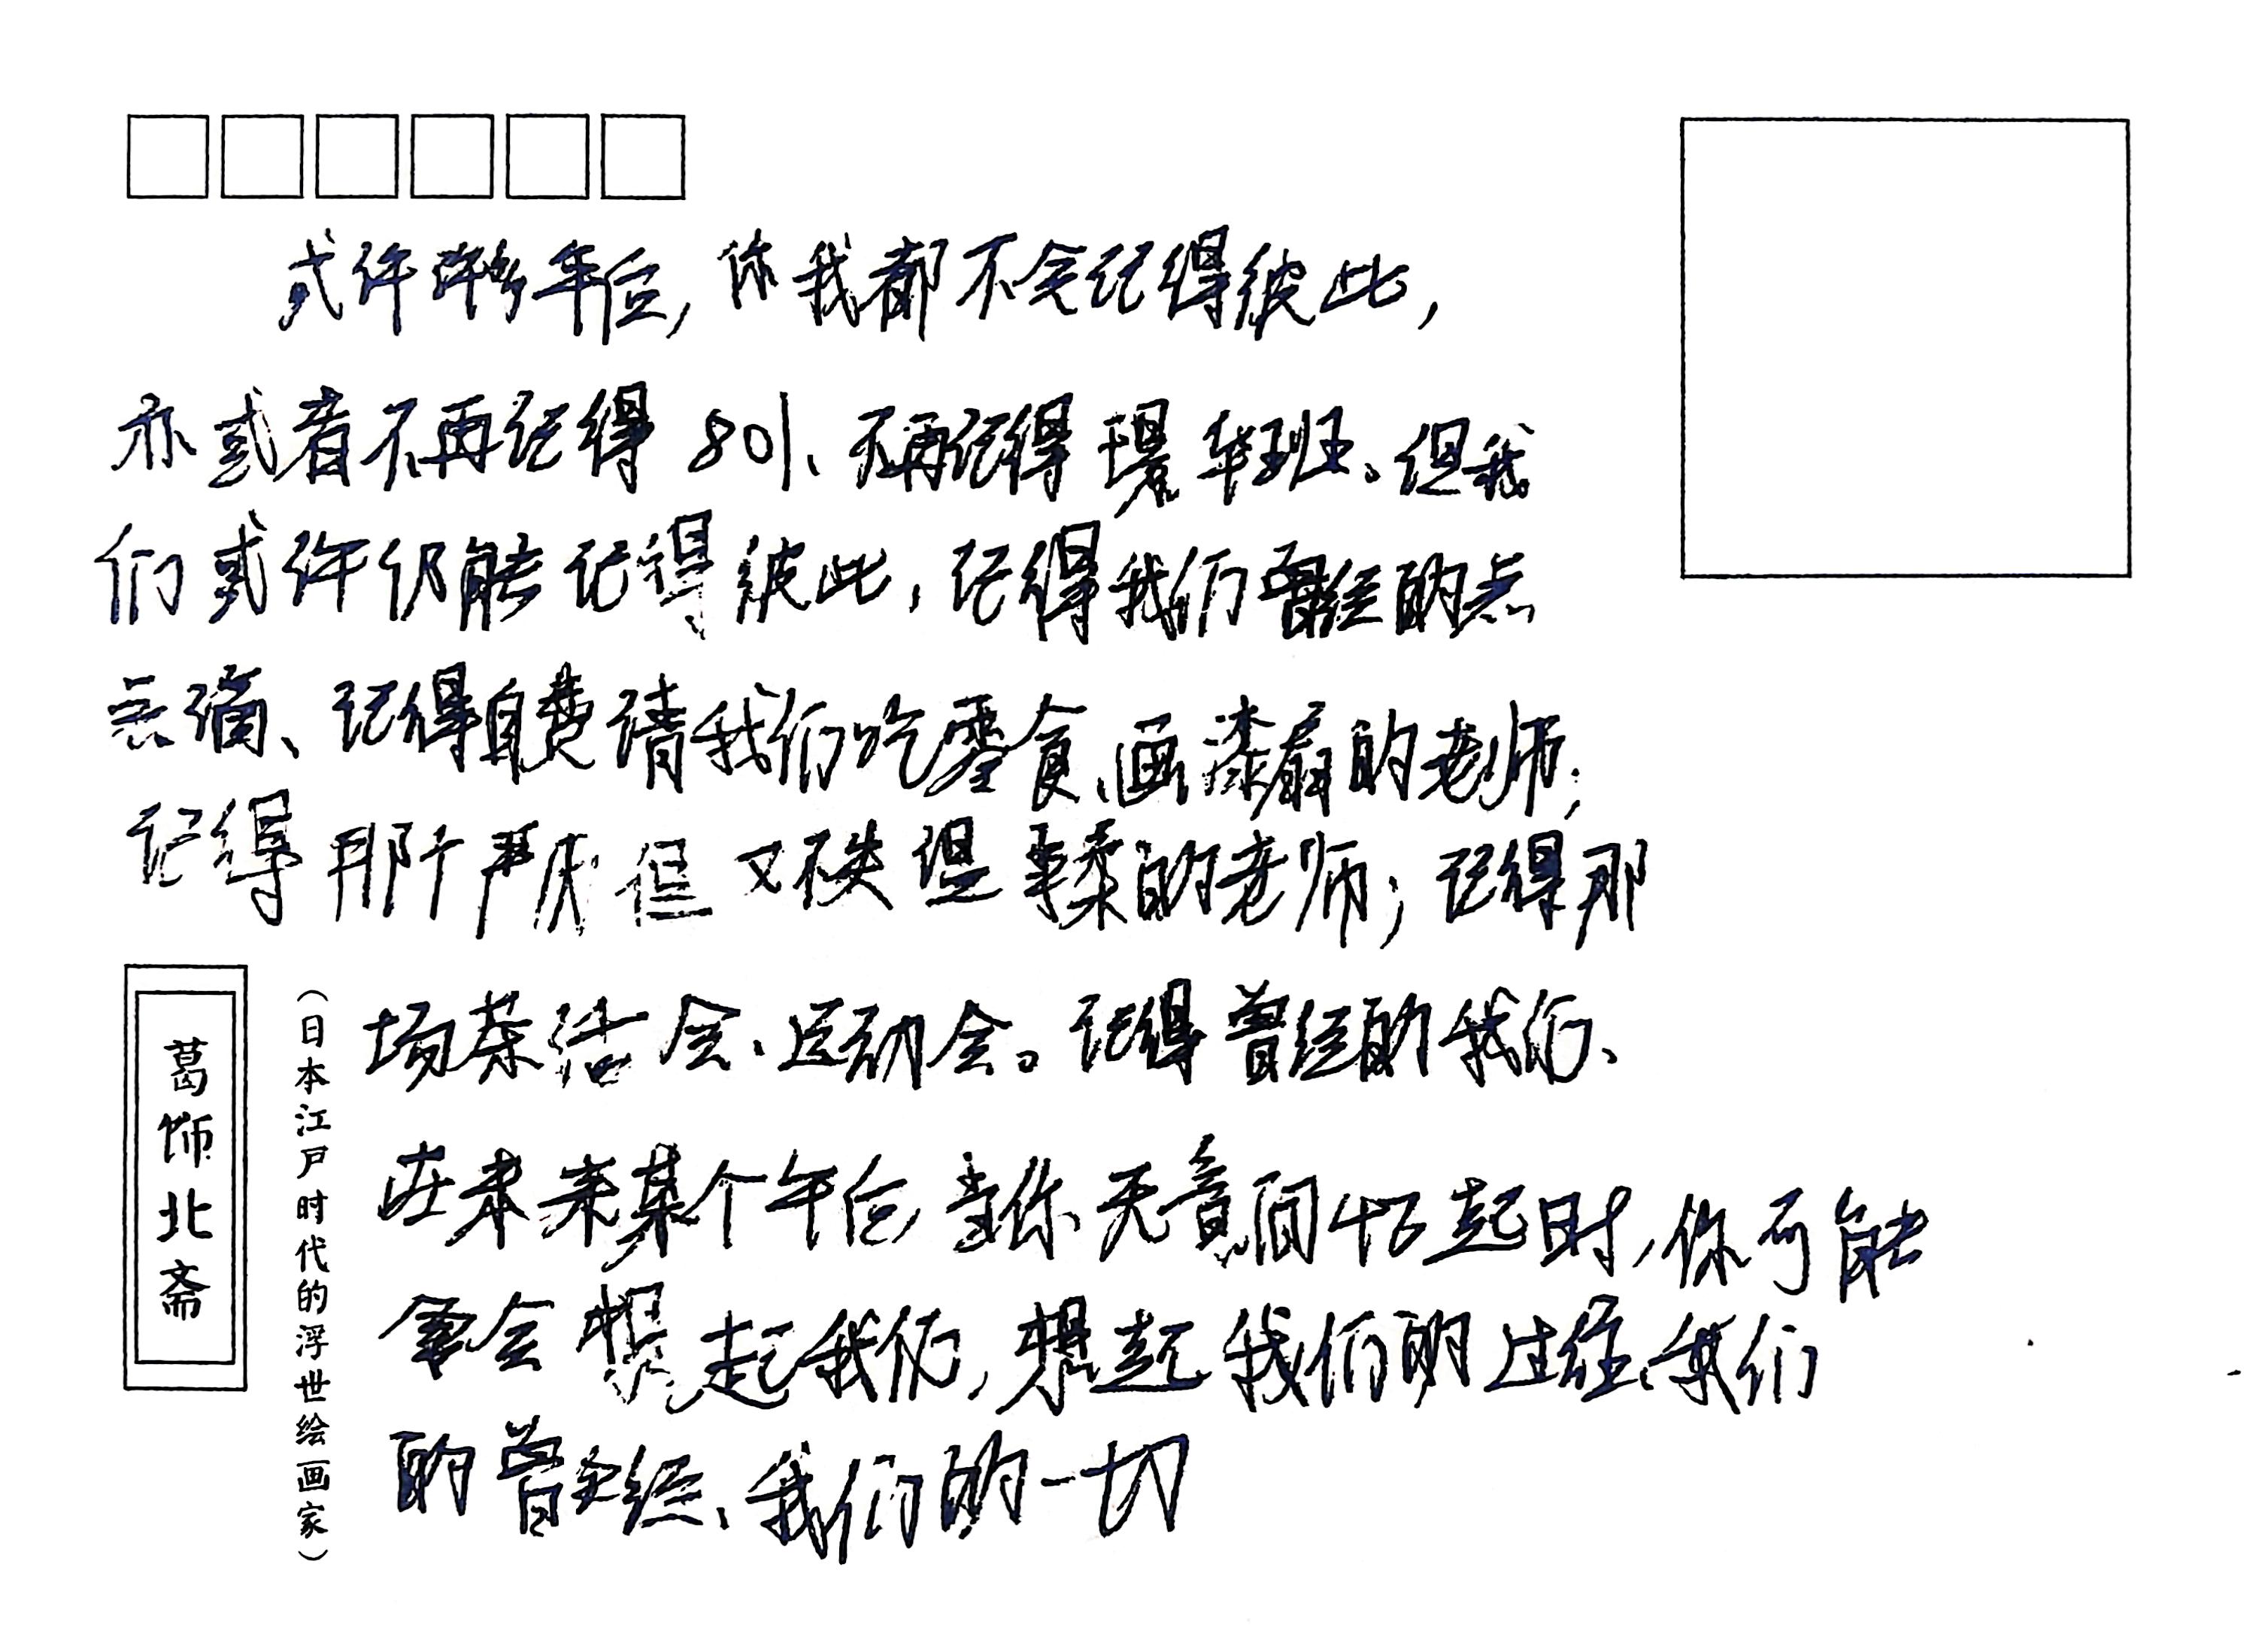 或许许多年后,你我都不会记得彼此,
亦或者不再记得801、不再记得璟华班。但我
们或许仍能记得彼此,记得我们曾经的点
点滴、记得自费请我们吃零食、画漆扇的老师;
记得那个严厉但又不失温柔的老师;记得那
场茶话会、运动会。记得曾经的我们、
在未来某个午后,当你无意间忆起时,你可能
会想起我们,想起我们的过往、我们
的曾经、我们的一切
葛饰北斋
(日本江户时代的浮世绘画家)